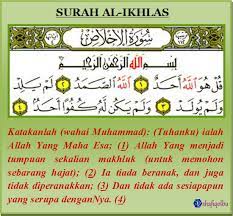 SURAH AL-IKHLAS
سورة الإخلاص
بسم الله الرحمن الرحيم
قل هو الله أحد ١ الله الصمد ٢ لم يلد
ولم يولد ٣ ولم يكن له كفوا أحد ٤
Katakanlah (wahai Muhammad): (Tuhanku) ialah
Allah Yang Maha Esa; (1) Allah Yang menjadi
tumpuan sekalian makhluk (untuk memohon
sebarang hajat); (2) Ia tiada beranak, dan juga
tidak diperanakkan; (3) Dan tidak ada sesiapapun
yang serupa denganNya. (4)